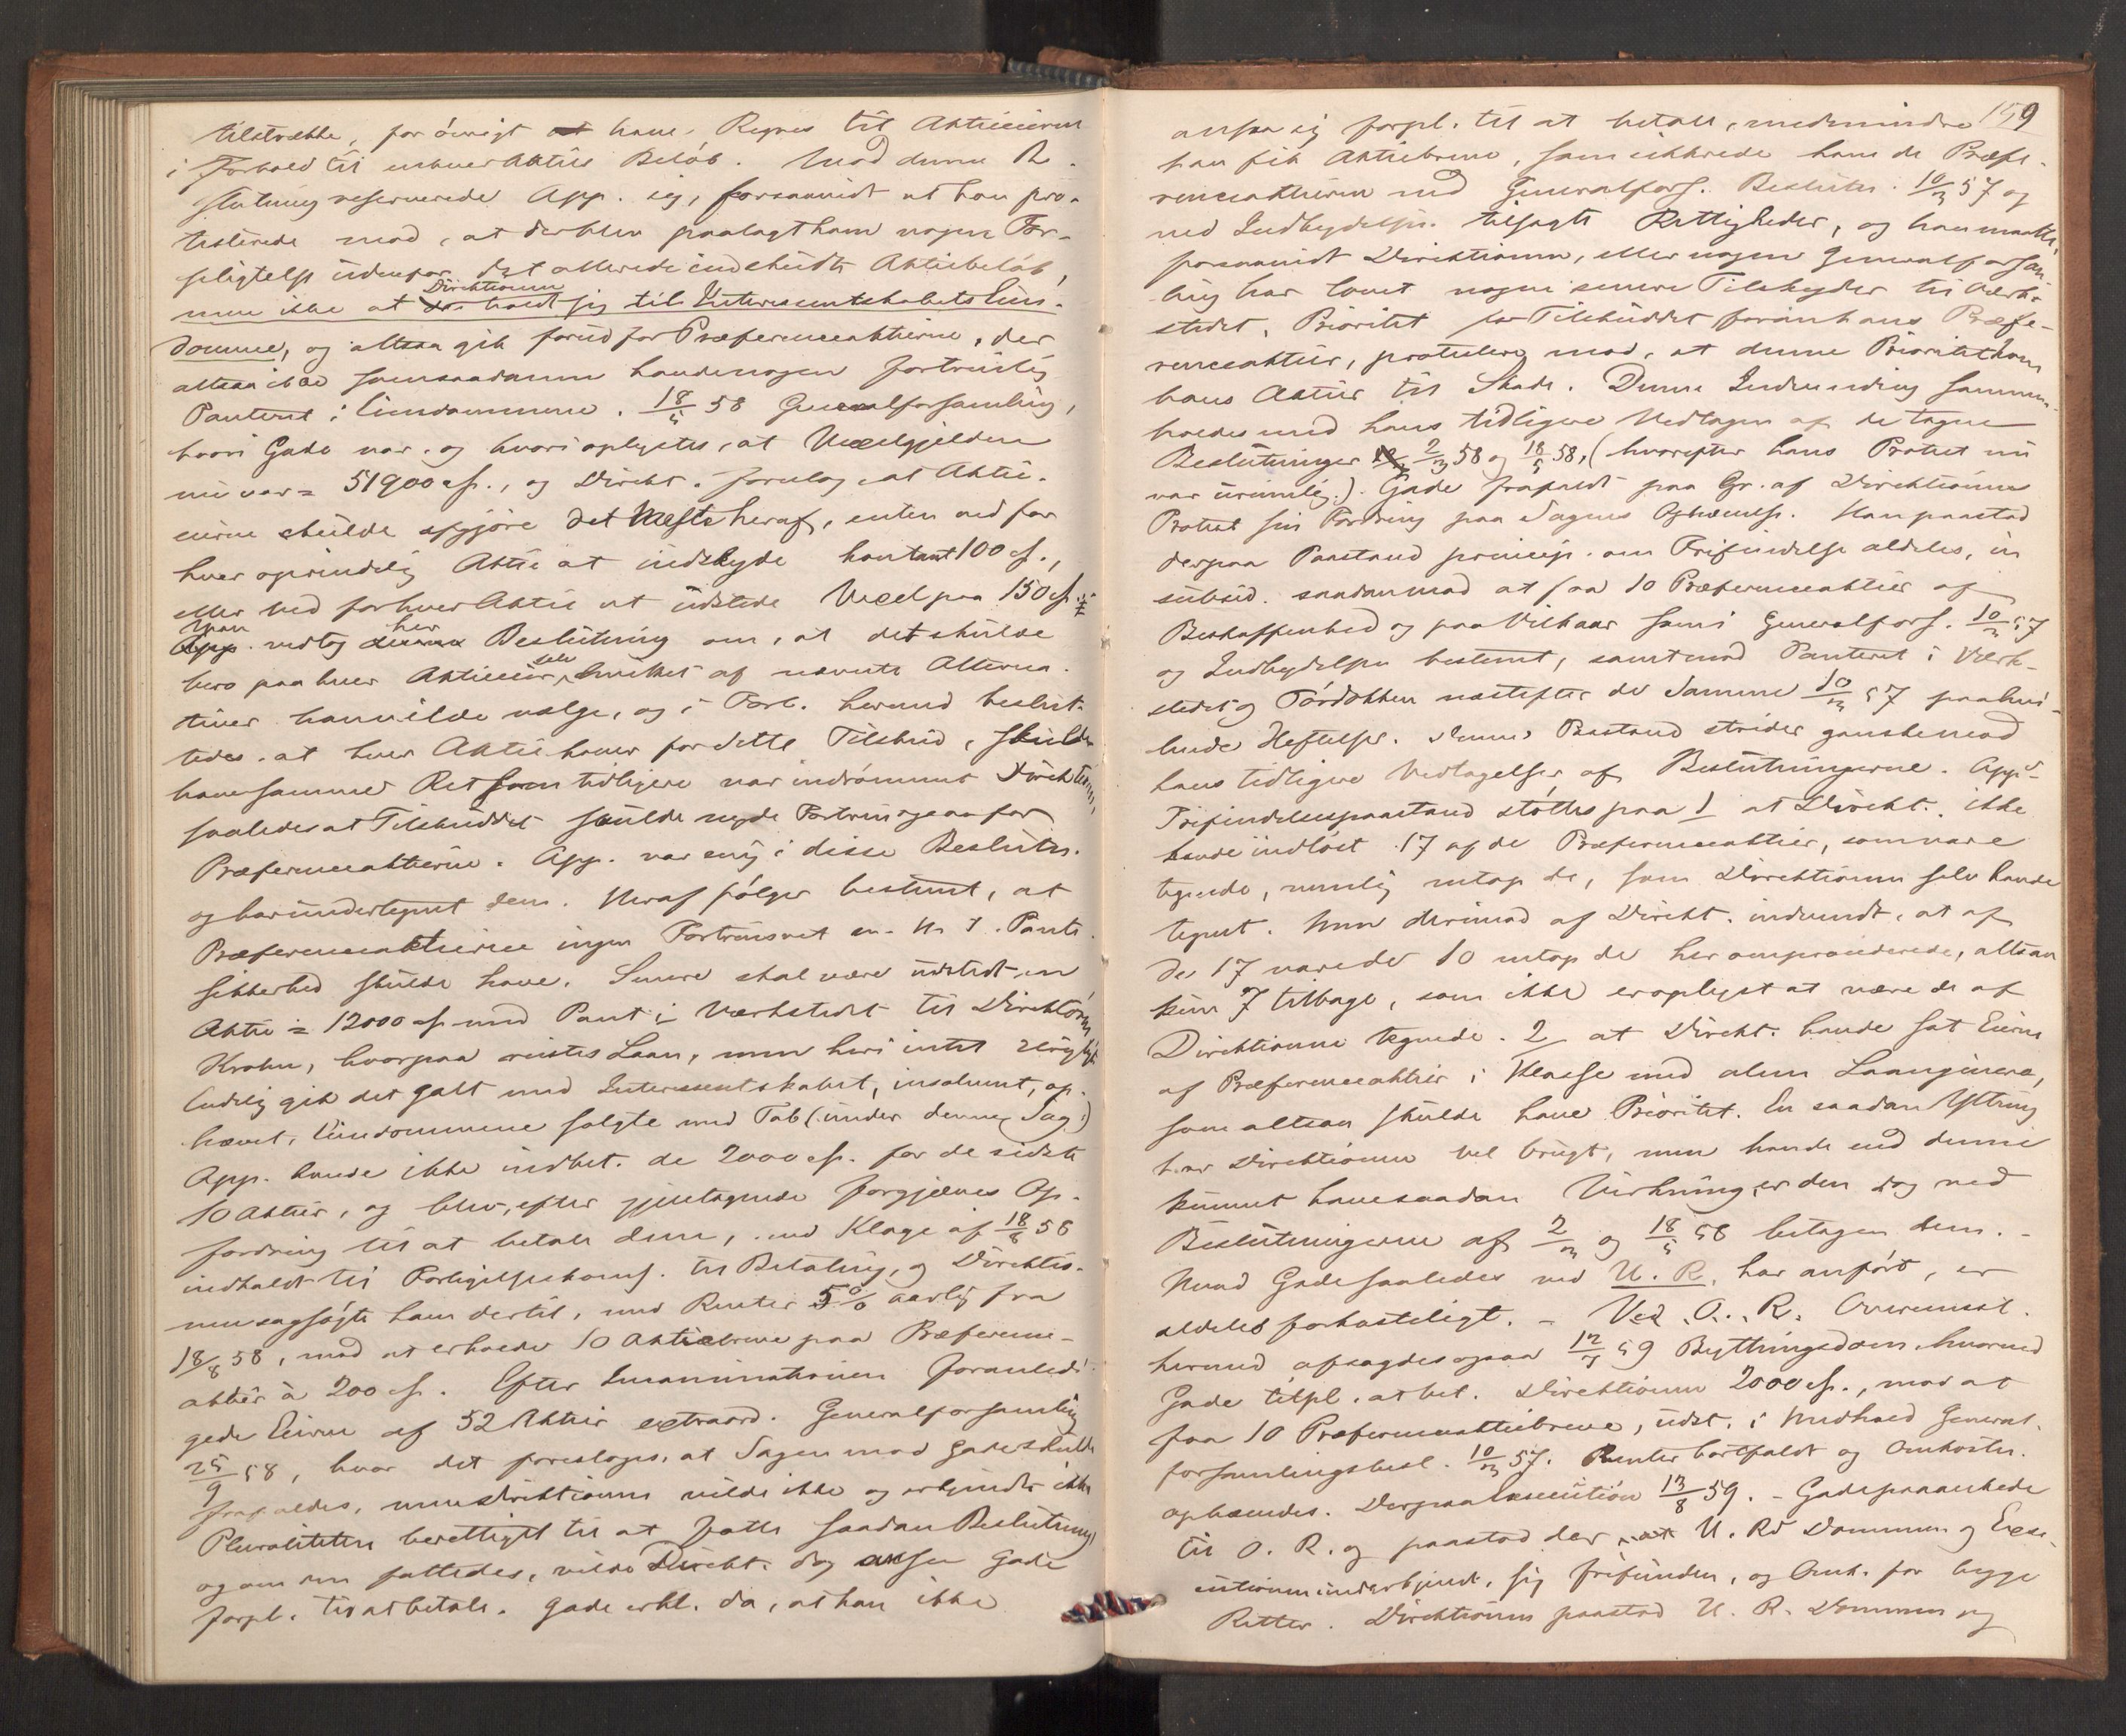 tilstrække, forövrigt at have Regres til Aktieeierne
i Forhold til enhver Akties Beløb. Mod denne Be-
slutning reserverede App. sig, forsaavidt at han pro-
testerede mod, at derblev paalagt ham nogen For-
pligtelse udenfor det allerede indskudte Aktiebeløb,
men ikke at Direktionen holdt sig til Interessentskabets Eien-
domme, og altsaa gik forud for Præferenceaktierne, der
altsaa ikke somsaadanne havde nogen fortrinlig
Panteret i Eiendommene. 18/5 58 Generalforsamling,
hvori Gade var, og hvori oplystes, at Vexelgjelden
nu var = 51900 sp., og Direkt. foreslog, at Aktie-
eierne skulde afgjöre det Meste heraf, enten ved for
hver oprindelig Aktie at indskyde kontant 100 sp.,
eller ved for hver Aktie at udstede Vexel paa 150 sp.
Man vedtog her Beslutning om, at det skulde
bero paa hver Aktieeier selv, hvilket af nævnte Alterna-
tiver han vilde vælge, og i Forb. hermed beslut-
tedes, at hver Aktiehaver for dette Tilskud, skulde
have samme Ret som tidligere var indrömmet Direktionen,
saaledes at Tilskuddet skulde nyde Fortrin ogsaa for
Præferenceaktierne. App. var enig i disse Beslutn.
og har undertegnet dem. Heraf fölger bestemt, at
Præferenceaktierne ingen Fortrinsret en. H. T. Pante-
sikkerhed skulde have. Senere skal være udstedt en
Aktie = 12000 sp. med Pant i Værkstedet til Direktören
Krohn, hvorpaa reistes Laan, men heri intet
Endelig gik det galt med Interessentskabet, insolvent, op-
hævet, Eiendommene solgte med Tab (under denne Sag.)
App. havde ikke indbet. de 2000 sp. for de sidste
10 Aktier, og blev, efter gjentagende forgjæves Op-
fordring til at betale dem, ved Klage af 18/8 58
indkaldt til Forligelseskomms. til Betaling, og Direktio-
nen sagsögte ham dertil, med Renter 5% aarlig fra
18/8 58, mod at erholde 10 Aktiebreve paa Præference-
aktier à 200 sp. Efter Examinationen foranledi-
gede Eierne af 52 Aktier extraord. Generalforsamling
25/9 58, hvor det foresloges, at Sagen mod Gade skulde
frafaldes, men Direktionen vilde ikke og erkjendte ikke
Pluraliteten berettiget til at fatte saadan Beslutning,
og om den fattedes, vilde Direkt. dog ansee Gade
forpl. til at betale. Gade erkl. da, at han ikke
159
ansaa sig forpl. til at betale, medmindre
han fik Aktiebreve, som sikkrede ham de Præfe-
renceaktierne ved Generalfors. Beslutn. 10/3 57 og
ved Indbydelsen tilsagte Rettigheder, og han maatte,
forsaavidt Direktionen, eller nogen Generalforsam-
ling har lovet nogen senere Tilskyder til Værk-
stedet, Prioritet for Tilskuddet foran hans Præfe-
renceaktier, protestere mod, at denne Prioritet kom
hans Aktier til Skade. Denne Indvending sammen-
holdes med hans tidligere Vedtagen af de tagne
Beslutninger 2/3 58 og 18/5 58, (hvorefter hans Protest nu
var urimelig.). Gade frafaldt paa Gr. af Direktionens
Protest sin Fordring paa Sagens Ophævelse. Han paastod
derpaa Paastand princip. om Frifindelse aldeles, en
subsid. saadan mod at faa 10 Præferenceaktier af
Beskaffenhed og paa Vilkaar som i Generalfors. 10/3 57
og Indbydelsen bestemt, samt mod Panteret i Værk-
stedet og Tördokken næstefter de Samme 10/3 57 paahvi-
lende Heftelser. Denne Paastand strider ganske mod
hans tidligere Vedtagelser af Beslutningerne. App's
Frifindelsespaastand stöttes paa 1 at Direkt. ikke
havde indlöst 17 af de Præferenceaktier, som vare
tegnede, nemlig netop de, som Direktionen selv havde
tegnet. Men derimod af Direkt. indvendt, at af
de 17 vare de 10 netop de her omprocederede, altsaa
kun 7 tilbage, som ikke er oplyst at være de af
Direktionen tegnede. 2 at Direkt. havde sat Eierne
af Præferenceaktier i Klasse med alm. Laangivere,
som altsaa skulde have Prioritet. En saadan Yttring
har Direktionen vel brugt, men havde end denne
kunnet have saadan Virkning, er den dog ved
Beslutningerne af 2/3 og 18/5 58 betagen dem. -
Hvad Gade saaledes ved U. R. har anfört, er
aldeles forkasteligt. - Ved O. R. Overensst.
hermed afsagdes ogsaa 12/7 59 Bythingsdom, hvorved
Gade tilpl. at bet. Direktionen 2000 sp., mod at
faa 10 Præferenceaktiebreve, udst. i Medhold General-
forsamlingsbesl. 10/3 57. Renter bortfaldt og Omkostn.
ophævedes. Derpaa Execution 13/8 59. - Gade paaankede
til O. R. og paastod der, U. Rs Dommen og Exe-
cutionen underkjendt, sig frifunden, og Omk. for begge
Retter. Direktionen paastod U. R. Dommen og